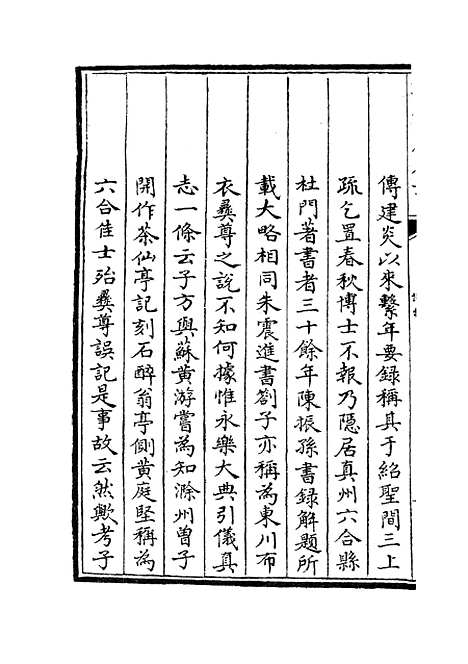 傳建炎以來繫年要錄稱其于紹聖間三上
疏乞置春秋博士不報乃隱居真州六合縣
杜門著書者三十餘年陳振孫書録解題所
載大略相同朱震進書劄子亦稱為東川布
衣彞尊之說不知何據惟永樂大典引儀真
志一條云子方與蘇黄游嘗為知滁州曽子
開作茶仙亭記刻石醉翁亭側黄庭堅稱為
六合佳士殆彞尊誤記是事故云然歟考子